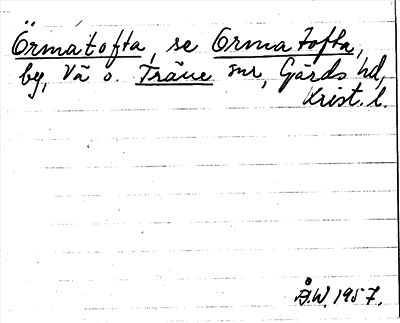 Örmatofta, se Ormatofta,
by, Vä o. Träne snr, Gärds hd,
Krist. l.
Å.W. 1957.